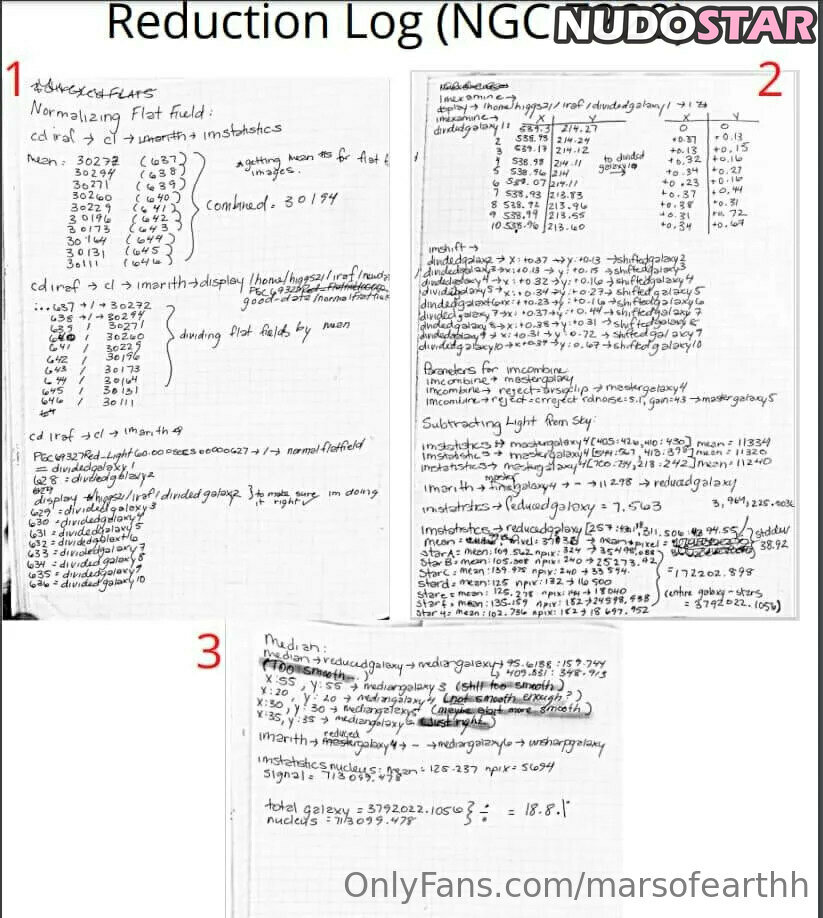 Reduction Log (NGC
NUDOSTAR
1
FLATS
Normalizing Flat Field:
cd iraf → cl → imarith → imstatistics
Mean: 30272 (637)
30294 (638)
30271 (639)
30260 (640)
30229 (641)
30196 (642)
30173 (643)
30164 (644)
30131 (645)
30111 (646)
combined = 30194
*getting mean #s for flat f
images.
cd iraf → cl → imarith → display /home/higgs21/iraf/
good-data/normalflatfield
...637 → / → 30272
638 → / → 30294
639 / 30271
640 / 30260
641 / 30229
642 / 30196
643 / 30173
644 / 30164
645 / 30131
646 / 30111
dividing flat fields by mean
cd iraf → cl → imarith
→ / → normalflatfield
= dividedgalaxy1
628 = dividedgalaxy2
629
display → higgs21/iraf/dividedgalaxy2 } to make sure im doing
it right ✓
629 = dividedgalaxy3
630 = dividedgalaxy4
631 = dividedgalaxy5
632 = dividedgalaxy6
633 = dividedgalaxy7
634 = dividedgalaxy8
635 = dividedgalaxy9
636 = dividedgalaxy10
2
imexamine →
display → /home/higgs21/iraf/dividedgalaxy1 → 1
imexamine → X Y X Y
dividedgalaxy 1 539.3 214.27 0 0
2 538.93 214.24 +0.37 +0.13
3 539.17 214.12 +0.13 +0.15
4 538.98 214.11 +0.32 +0.16
5 538.96 214 +0.34 +0.27
6 539.07 214.11 +0.23 +0.16
7 538.93 213.83 +0.37 +0.44
8 538.92 213.96 +0.38 +0.31
9 538.99 213.55 +0.31 +0.72
10 538.96 213.60 +0.34 +0.67
to divided
galaxy1
imshift →
dividedgalaxy2 → x: +0.37 → y: +0.13 → shiftedgalaxy2
dividedgalaxy3 → x: +0.13 → y: +0.15 → shiftedgalaxy3
dividedgalaxy4 → x: +0.32 → y: +0.16 → shiftedgalaxy4
dividedgalaxy5 → x: +0.34 → y: +0.27 → shiftedgalaxy5
dividedgalaxy6 → x: +0.23 → y: +0.16 → shiftedgalaxy6
dividedgalaxy7 → x: +0.37 → y: +0.44 → shiftedgalaxy7
dividedgalaxy8 → x: +0.38 → y: +0.31 → shiftedgalaxy8
dividedgalaxy9 → x: +0.31 → y: +0.72 → shiftedgalaxy9
dividedgalaxy10 → x: +0.34 → y: 0.67 → shiftedgalaxy10
Parameters for imcombine
imcombine → mastergalaxy
imcombine → reject = avsigclip → mastergalaxy4
imcombine → reject = crreject rdnoise=5.1, gain=4.3 → mastergalaxy5
Subtracting Light from Sky:
imstatistics → mastergalaxy4[405:426,410:430] mean = 11334
imstatistics → mastergalaxy4 mean = 11320
imstatistics → mastergalaxy4[700:734,218:242] mean = 11240
imarith → galaxy4 → - → 11298 → reducedgalaxy
imstatistics → reducedgalaxy = 7.563
imstatistics → reducedgalaxy
mean = → mean * pixel = stddev
38.92
StarA = mean: 109.562 npix: 324 → 35498.088
StarB = mean: 105.308 npix: 240 → 25273.92
StarC = mean: 139.975 npix: 240 → 33594
Stard = mean: 125 npix: 132 → 16500
Stare = mean: 125.278 npix: 144 → 18040
Starf = mean: 135.159 npix: 182 → 24598.938
mean: 102.736 npix: 182 → 18697.952
= 172202.898
(entire galaxy - stars
= 3792022.1056)
3
Median:
median → reducedgalaxy → mediangalaxy
(Too smooth.)
x:55, y:55 → mediangalaxy3 (still too smooth)
x:20, y:20 → mediangalaxy4 (not smooth enough?)
x:30, y:30 → mediangalaxy5 (maybe bit more smooth)
x:35, y:35 → mediangalaxy6 (just right)
reduced
imarith → galaxy4 → - → mediangalaxy6 → unsharpgalaxy
imstatistics nucleus: mean = 125.237 npix = 5694
Signal = 713099.478
total galaxy = 3792022.1056 } ÷ = 18.8.1
nucleus = 713099.478
OnlyFans.com/marsofearthh